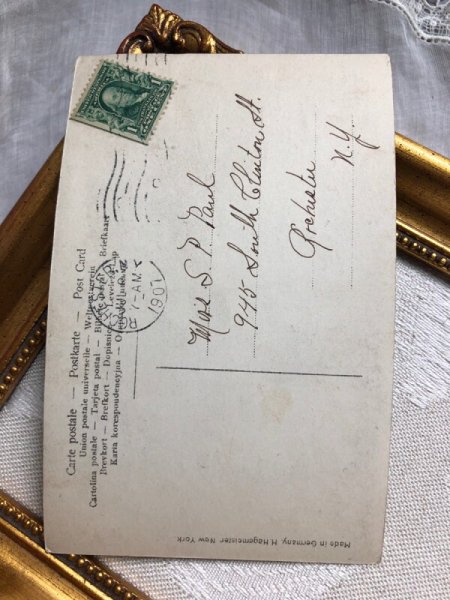 Carte postale — Postkarte — Post Card
Union postale universelle — Weltpostverein
Cartolina postale — Tarjeta postal — Briefkaart
Brevkort — Brefkort — Dopisnice
Karta korespondencyjna —
7-AM
190
1
Mae S. P. Paul
945 South Clinton St.
Rochester
N.Y
Made in Germany, H. Hagemeister New York